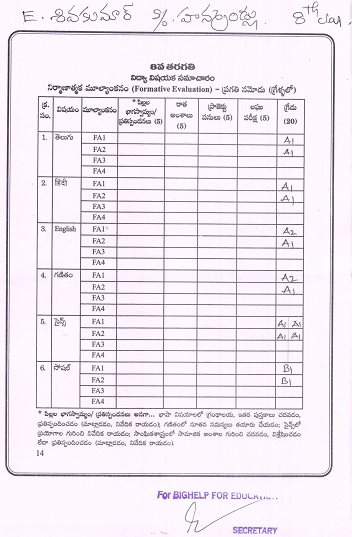 E. శివకుమార్ S/o. 8th class
8వ తరగతి
విద్యా విషయక సమాచారం
నిర్మాణాత్మక మూల్యాంకనం (Formative Evaluation) – ప్రగతి నమోదు (గ్రేళ్ళలో)
క్ర. సం. విషయం మూల్యాంకనం * పిల్లల భాగస్వామ్యం/ ప్రతిస్పందనలు (5) రాత అంశాలు (5) ప్రాజెక్టు పనులు (5) లఘు పరీక్ష (5) గ్రేడు (20)
1. తెలుగు FA1 A1
FA2 A1
FA3
FA4
2. हिंदी FA1 A1
FA2 A1
FA3
FA4
3. English FA1 A2
FA2 A1
FA3
FA4
4. గణితం FA1 A2
FA2 A1
FA3
FA4
5. సైన్స్ FA1 A1 A1
FA2 A1 A1
FA3
FA4
6. సోషల్ FA1 B1
FA2 B1
FA3
FA4
* పిల్లల భాగస్వామ్యం/ ప్రతిస్పందనలు అనగా... భాషా విషయాలలో గ్రంథాలయ, ఇతర పుస్తకాలు చదవడం,
ప్రతిస్పందించడం (మాట్లాడడం, నివేదిక రాయడం); గణితంలో నూతన సమస్యలు తయారు చేయడం; సైన్స్‌లో
ప్రయోగాల గురించి నివేదిక రాయడం; సాంఘికశాస్త్రంలో సామాజిక అంశాల గురించి చదవడం, విశ్లేషించడం
లేదా ప్రతిస్పందించడం (మాట్లాడడం, నివేదిక రాయడం).
14
For BIGHELP FOR EDUCATION
SECRETARY